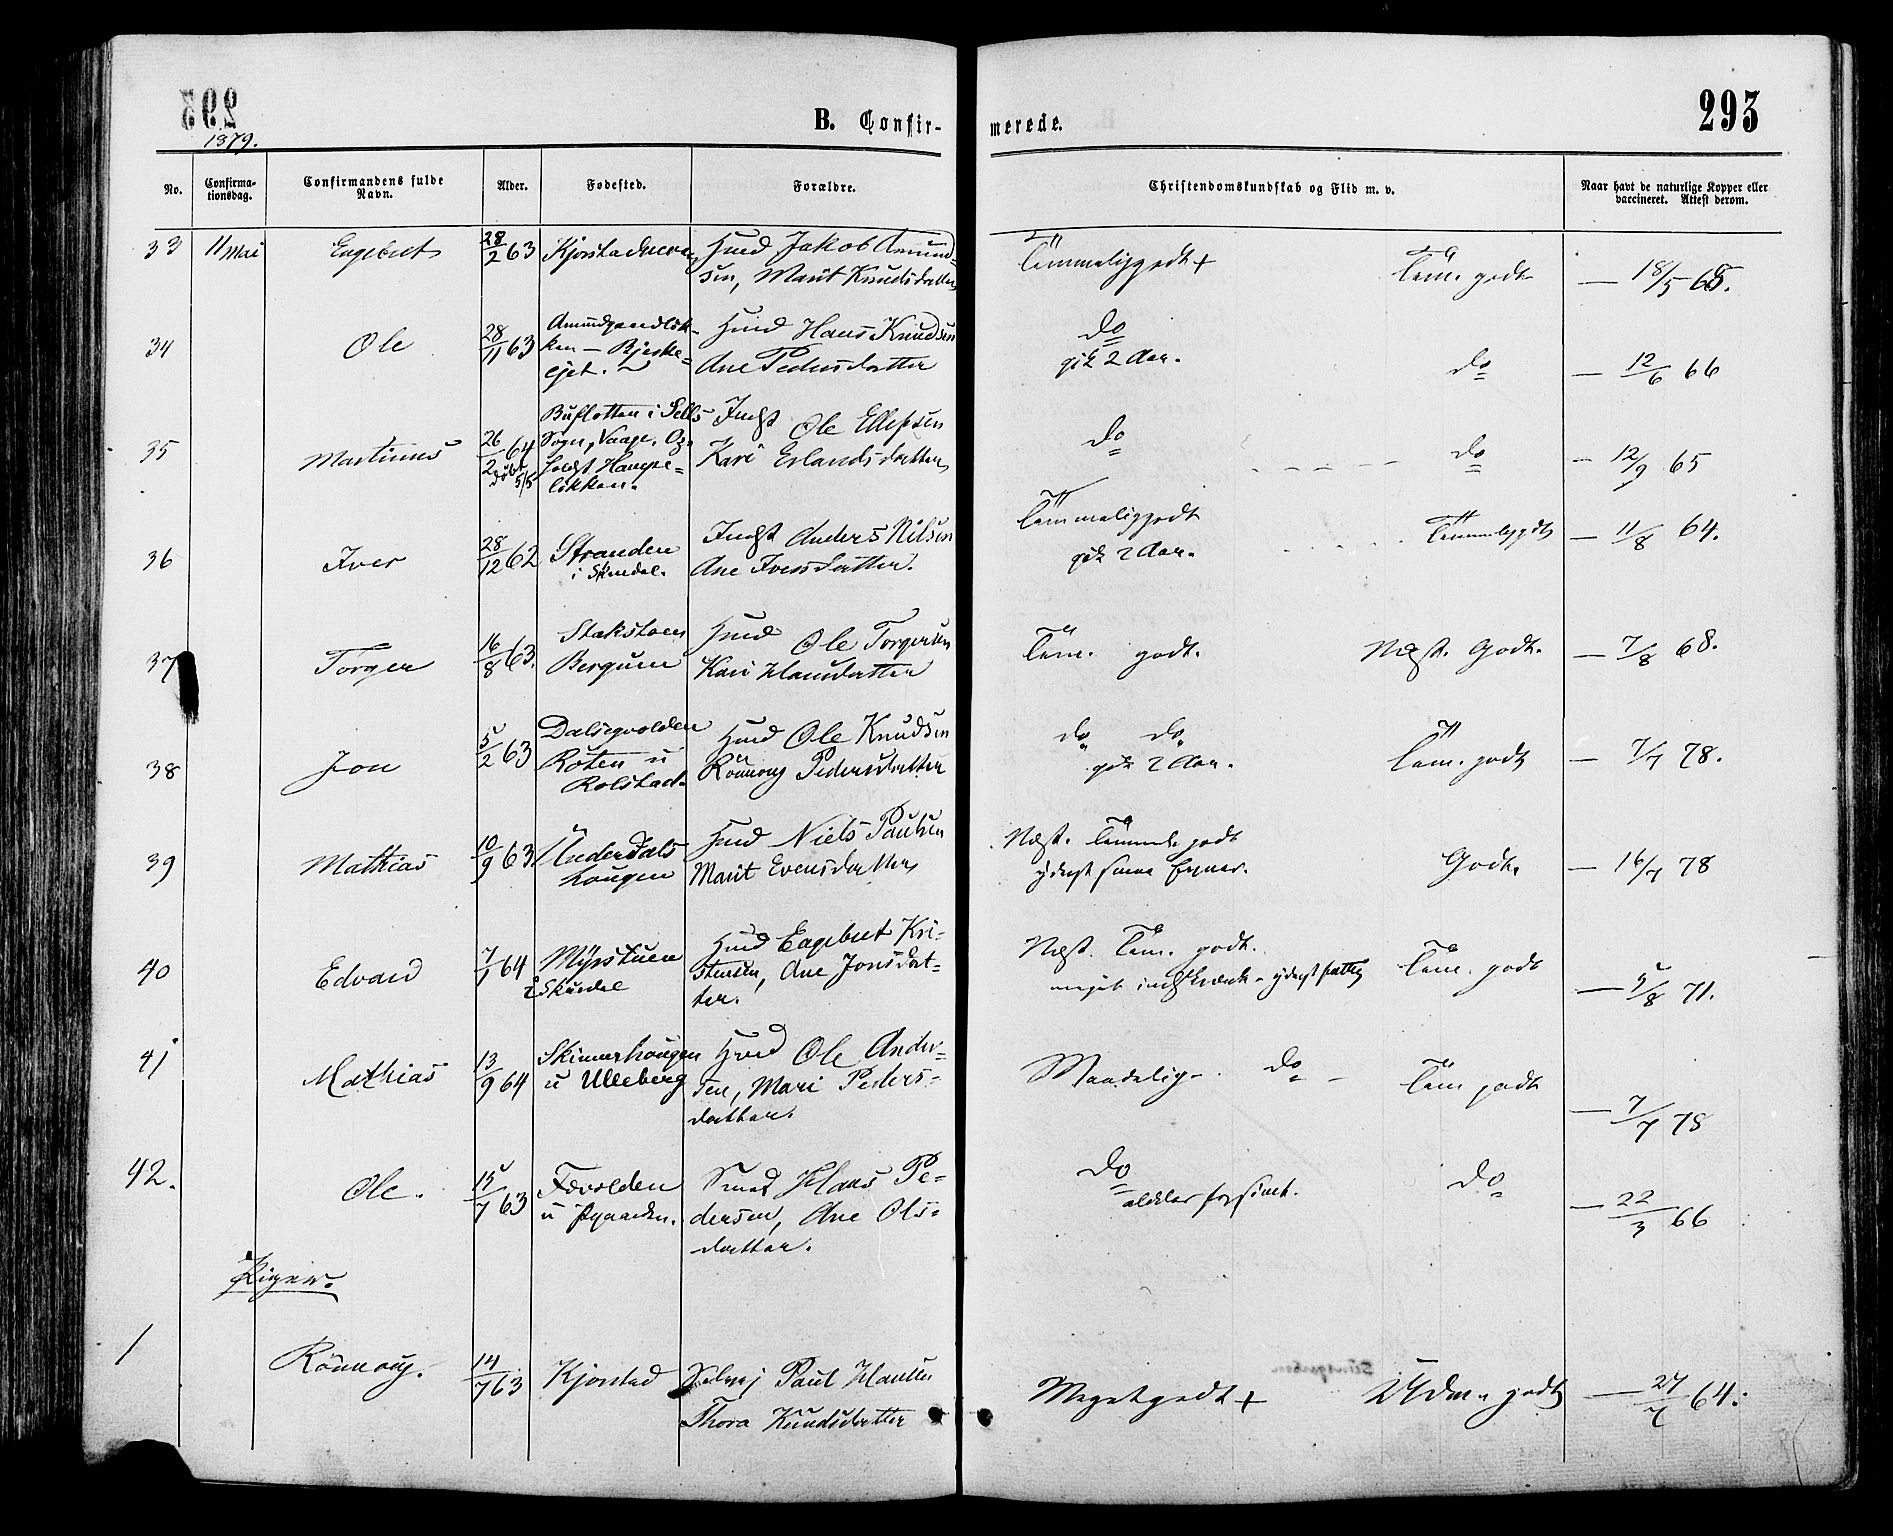 293
1879.
B. Confir-
merede.
293
No.
Confirma-
tionsdag.
Confirmandens fulde
Navn.
Alder.
Fødested.
Forældre.
Christendomskundskab og Flid m. v.
Naar havt de naturlige Kopper eller
vaccineret. Attest derom.
33 11 Mai Engebret 28/2 63 Hmd Jakob Amund-
sen, Marit Knudsdatter
Temmeliggodt + Tem. godt — 18/5 65.
34 Ole 28/11 63 Hmd Hans Knudsen
Ane Pedersdatter
do
gik 2 Aar. do — 12/6 66
35 Martinus 26/2 64 døbt 5/5
i Sells
Sogn, Vaage.
løkken.
Indst Ole Ellefsen
Kari Erlandsdatter
do do — 12/9 65
36 Iver 28/12 62 Stranden
i Skurdal.
Indst Anders Nilsen
Ane Iversdatter.
Temmeliggodt
gik 2 Aar. Temmeliggodt — 11/8 64.
37 Torger 16/8 63. Stakstoen
Bergum
Hmd Ole Torgersen
Kari Hansdatter
Tem. godt. Næst. Godt. — 7/8 68.
38 Jon 5/2 63 Dalsegvolden
Roten u
Rolstad.
Hmd Ole Knudsen
Rönnoug Pedersdatter
do do
gik 2 Aar. Tem. godt — 7/7 78.
39 Mathias 10/9 63 Underdals
hougen
Hmd Niels Paulsen
Marit Evensdatter
Næst. Temmel. godt
yderst smaa Evner. Godt. — 16/7 78
40 Edvard 7/1 64 Myrstuen
i Skurdal
Hmd Engebret Kri-
stensen, Ane Jonsdat-
ter.
Næst. Tem. godt.
meget indskrænk. yderst fattig Tem. godt — 5/8 71.
41 Mathias 13/9 64 Skinnerhougen
u Ulleberg
Hmd Ole Ander-
sen, Mari Peders-
datter.
Maadelig - do - Tem godt — 7/7 78
42. Ole. 15/7 63
Smed Hans Pe-
dersen, Ane Ols-
datter.
do
do — 22/3 66
Piger.
1 Rönnoug. 14/7 63 Kjørstad Selvej Paul Hansen
Thora Knudsdatter
Megetgodt + Udm. godt — 27/7 64.